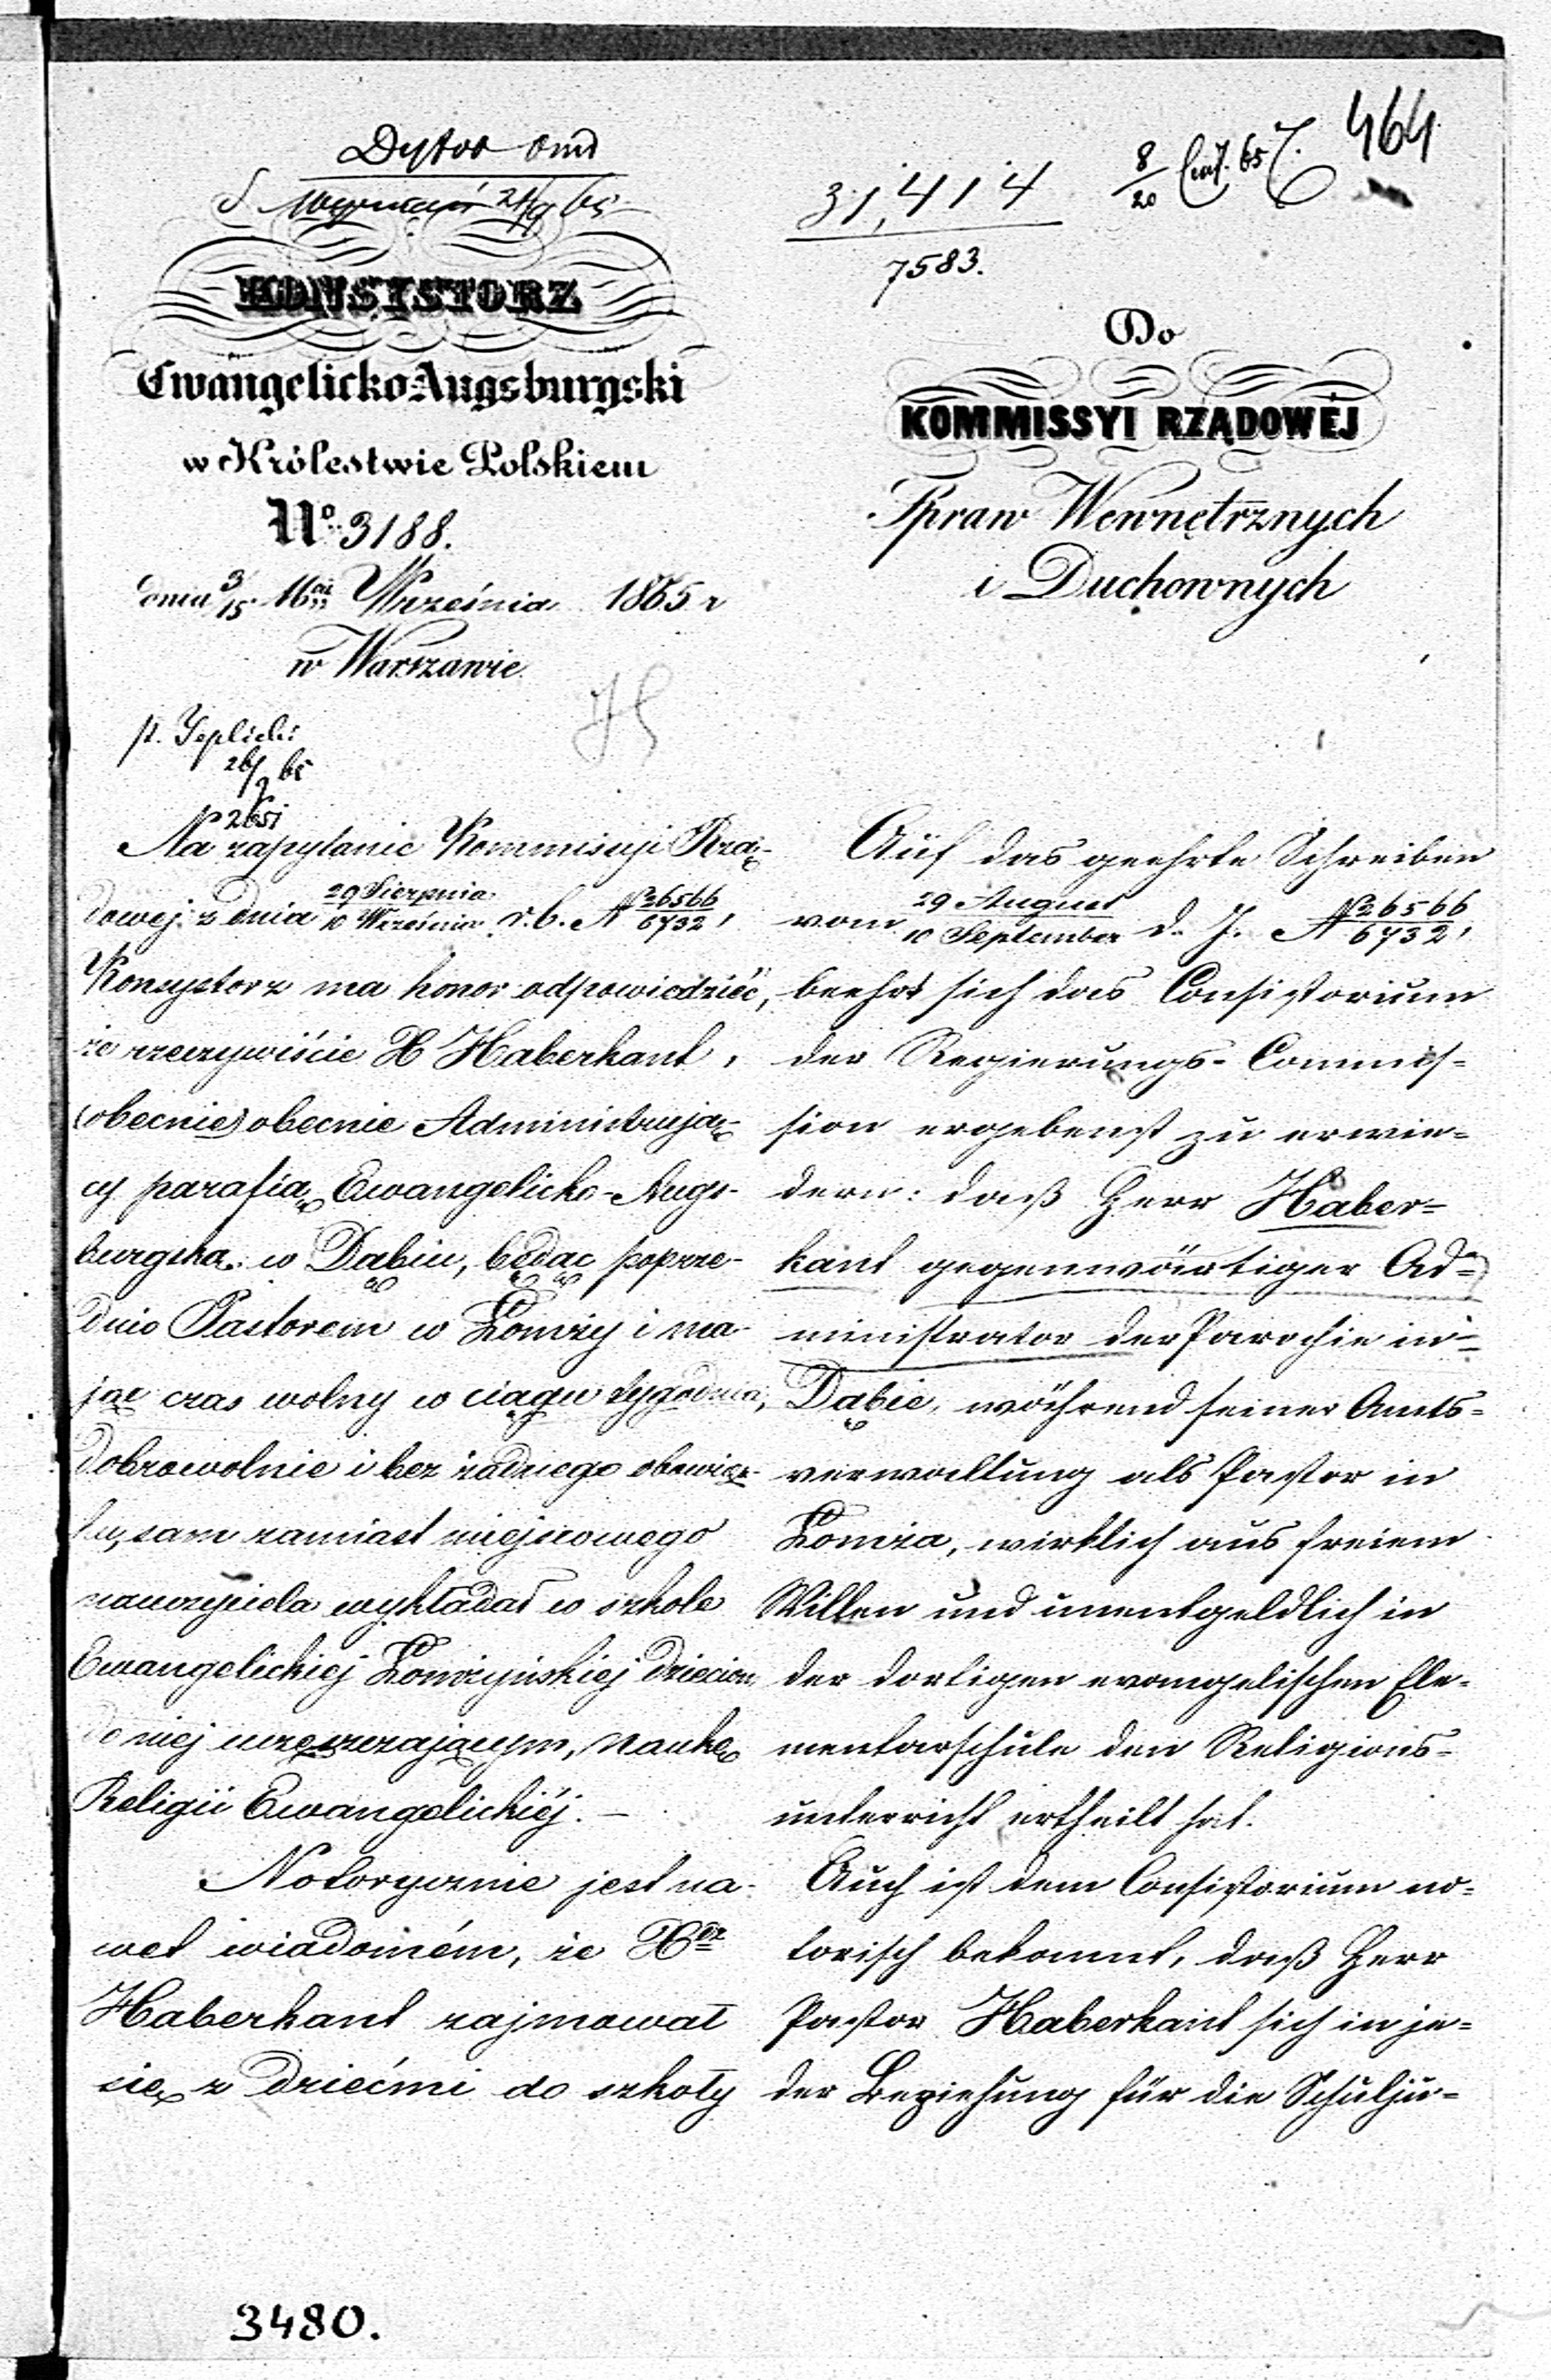 464
8/20 65
31,414
7583.
21/9 65
KONSYSTORZ
Ewangelicko-Augsburgski
w Królestwie Polskiem
No 3188.
dnia 3/15 Września 1865 r
w Warszawie
Do
KOMMISSYI RZĄDOWÉJ
Spraw Wewnętrznych
i Duchownych
p. Teplicki
26/9 65
Na zapytanie Kommisyi Rzą-
dowej z dnia 29 Sierpnia/10 Września r.b. N 26566/6732,
Konsystorz ma honor odpowiedzieć,
że rzeczywiście X Haberkant,
(obecnie) obecnie Administrują-
cy parafią Ewangelicko-Augs-
burgską w Dąbiu, będąc poprze-
dnio Pastorem w Łomży i ma-
jąc czas wolny w ciągu tygodnia,
dobrowolnie i bez żadnego obowiąz-
ku, sam zamiast miejscowego
nauczyciela wykładał w szkole
Ewangelickiej Łomżyńskiej dzieciom
do niej uczęszczającym, naukę
Religii Ewangelickiéj. —
Notorycznie jest na-
wet wiadomém, że Xdz
Haberkant zajmował
się z dziećmi do szkoły
Auf das geehrte Schreiben
vom 29 August/10 September d. J. N 26566/6732,
beehrt sich das Consistorium
der Regierungs-Commis-
sion ergebenst zu erwie-
dern: daß Herr Haber-
kant gegenwärtiger Ad-
ministrator der Parochie in
Dąbie, während seiner Amts-
verwaltung als Pastor in
Łomża, wirklich aus freiem
Willen und unentgeldlich in
der dortigen evangelischen Ele-
mentarschule den Religions-
unterricht ertheilt hat.
Auch ist dem Consistorium no-
torisch bekannt, daß Herr
Pastor Haberkant sich in je-
der Beziehung für die Schulju-
3480.